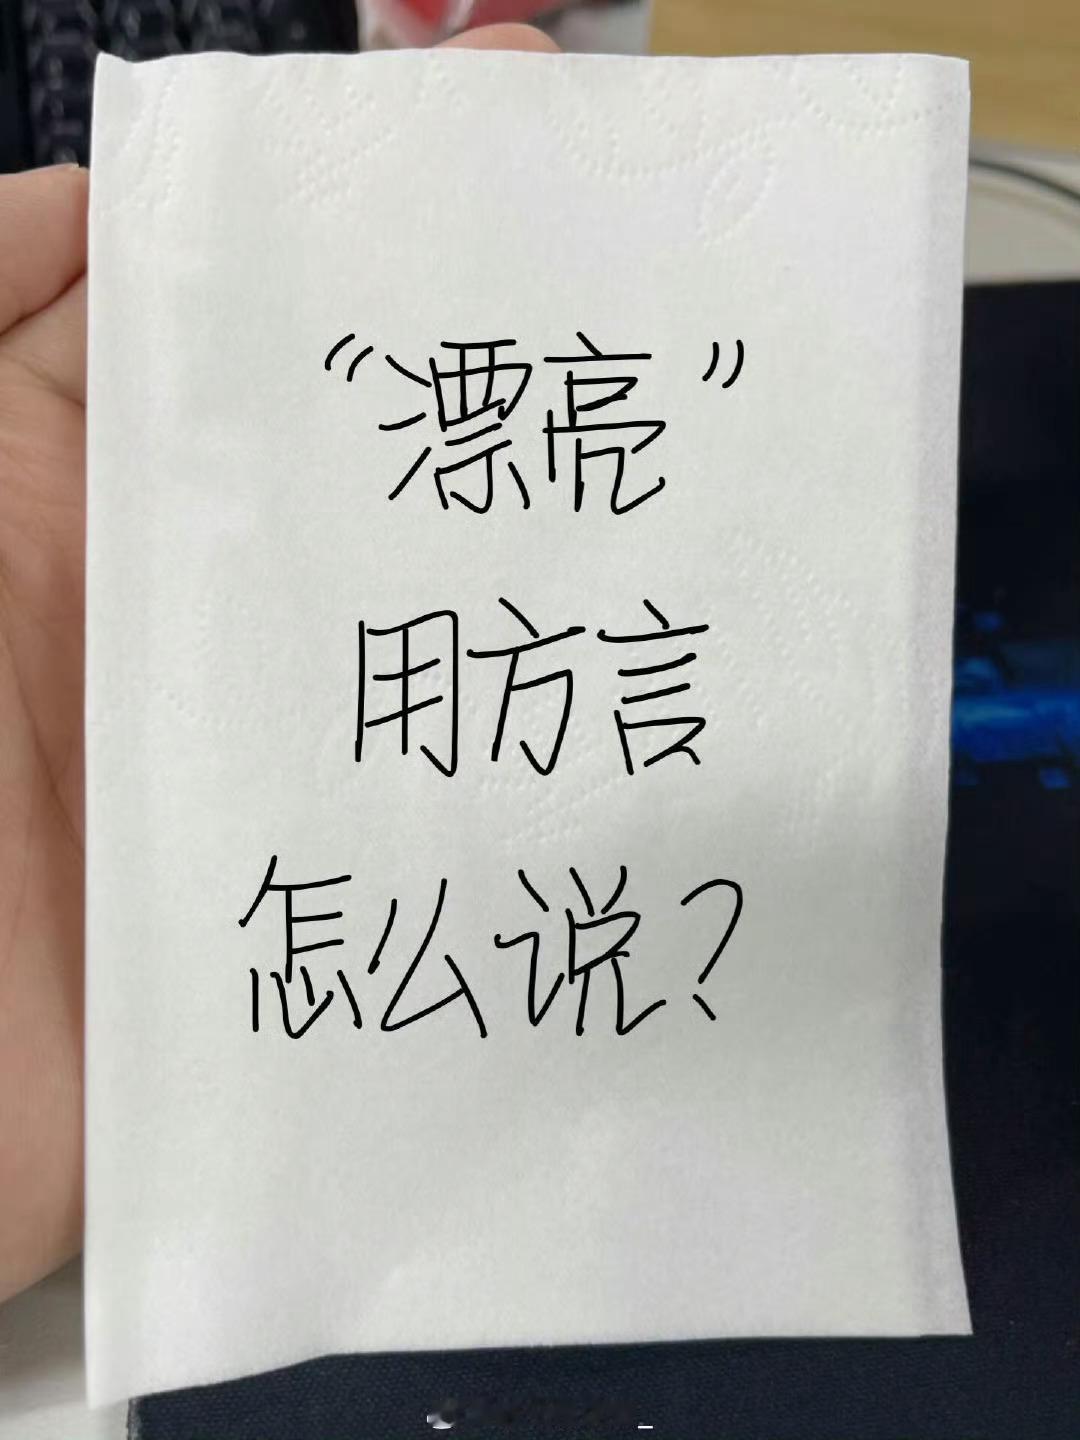 “漂亮”
用方言
怎么说？